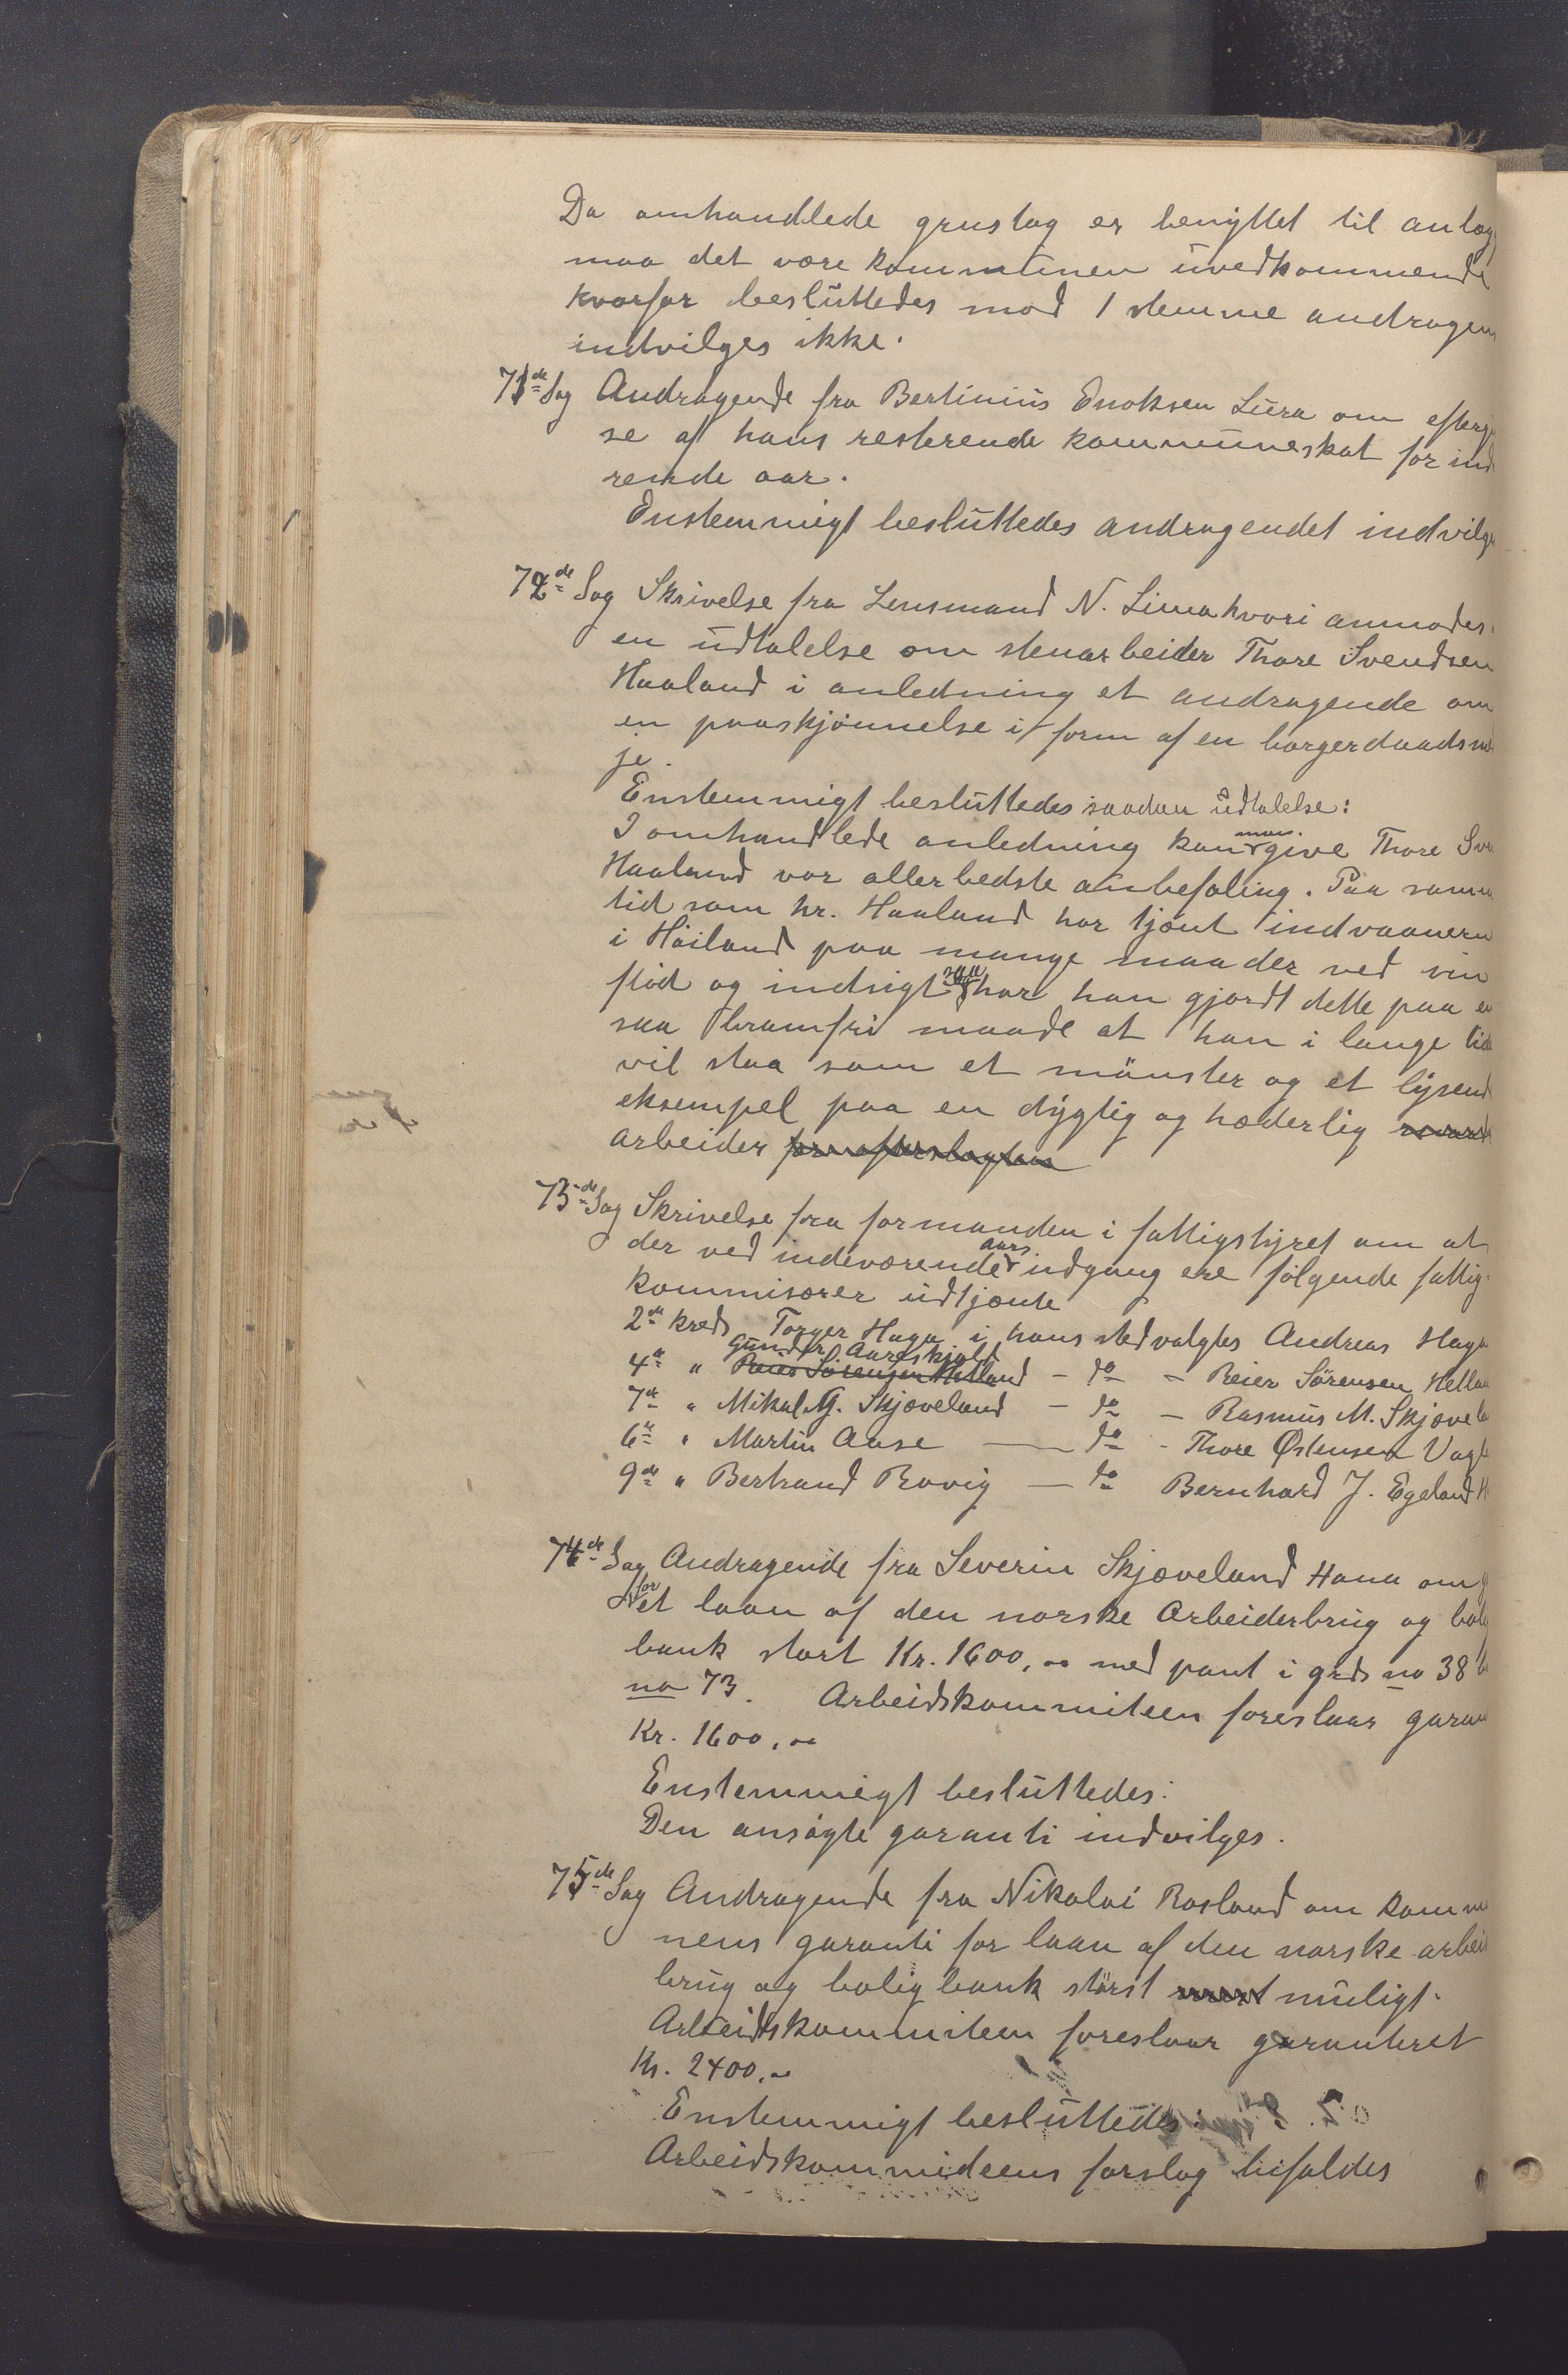 Da omhandlede grustag er benyttet til anlæg
maa det være kommunen uvedkommende
hvorfor besluttedes mod 1 stemme andragen
indvilges ikke.
71de Sag Andragende fra Bertinius Enoksen Lura om eftergi
se af hans resterende kommuneskat for ind
rende aar.
Enstemmigt besluttedes andragendet indvilge
72de Sag Skrivelse fra Lensmand N. Lima hvori anmodes
en udtalelse om stenarbeider Thore Svendsen
Haaland i anledning et andragende om
en paaskjønnelse i form af en borgerdaadsme
je.
Enstemmigt besluttedes saadan udtalelse:
I omhandlede anledning kan man give Thore Sve
Haaland vor allerbedste anbefaling. Paa samm
tid som hr. Haaland har tjent indvaanern
i Høiland paa mange maader ved sin
flid og indsigt saa har han gjordt dette paa en
saa bramfri maade at han i lange tide
vil staa som et mønster og et lysend
eksempel paa en dygtig og hæderlig
arbeider for efterslægten
73de Sag Skrivelse fra formanden i fattigstyret om at
der ved indeværende aars udgang ere følgende fattig-
kommisærer udtjente
2den kreds Torger Haga i hans sted valgtes Andreas Haga
4de " Gunder Aareskjold Reier Sørensen Hetland - do - Reier Sørensen Hetlan
7de " Mikal G. Skjæveland - do - Rasmus M. Skjævela
6te " Martin Aase - do - Thore Østensen Vagl
9de " Bertrand Rovig - do Bernhard J. Egeland H
74de Sag Andragende fra Severin Skjæveland Hana om g
for et laan af den norske Arbeiderbrug og boli
bank stort Kr. 1600,00 med pant i grds no 38 b
no 73. Arbeidskommiteen foreslaar garan
Kr. 1600,00
Enstemmigt besluttedes:
Den ansøgte garanti indvilges.
75de Sag Andragende fra Nikolai Rosland om kommu
nens garanti for laan af den norske arbeid
brug og bolig bank størst muligt.
Arbeidskommiteen foreslaar garanteret
Kr. 2400,00
Enstemmigt besluttedes:
Arbeidskommideens forslag bifaldes